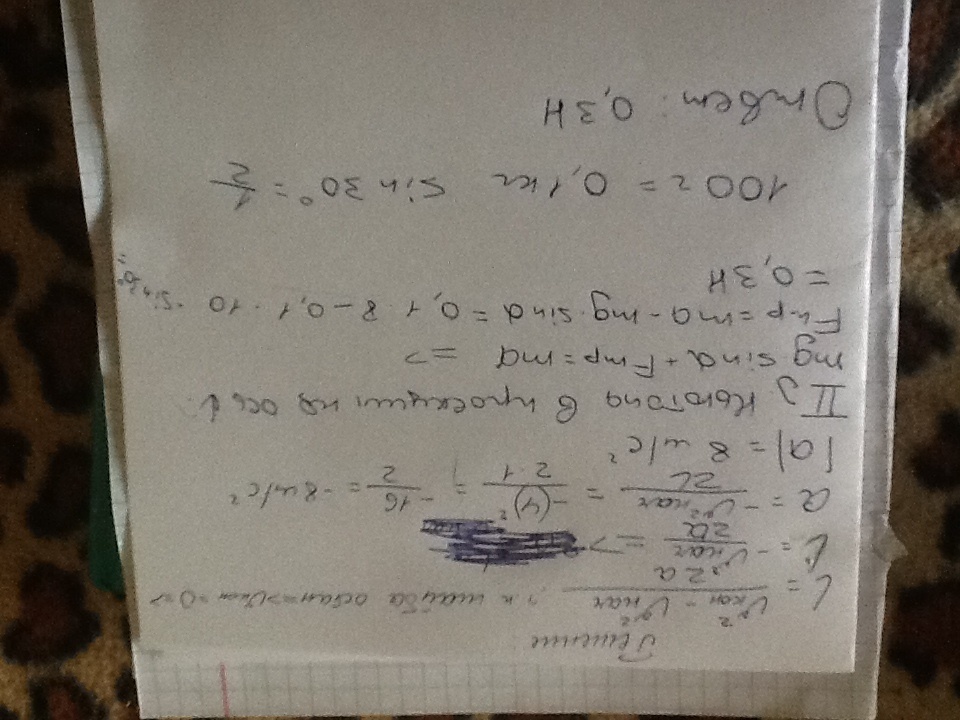 Решение
L = (υ²кон - υ²нач)/2a , т.к шайба остан => υкон = 0 =>
L = -υ²нач/2a =>
a = -υ²нач/2L = -(4)²/2·1 = -16/2 = -8 м/с²
|a| = 8 м/с²
II з Ньютона в проекции на ось
mg sinα + Fтр = ma =>
Fтр = ma - mg·sinα = 0,1·8 - 0,1·10·sin30° =
= 0,3Н
100г = 0,1кг sin30° = 1/2
Ответ: 0,3Н